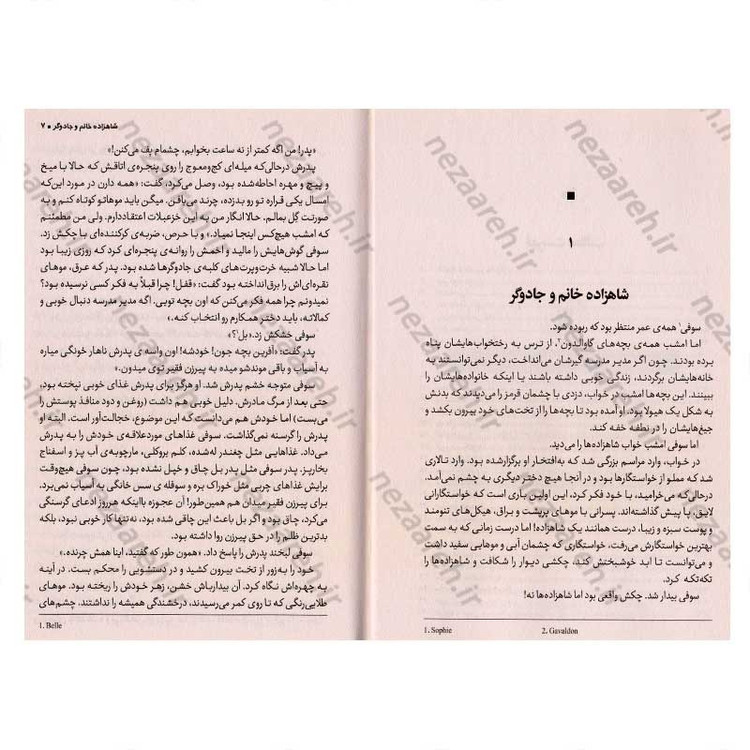 ۱
شاهزاده خانم و جادوگر
سوفی۱ همه‌ی عمر منتظر بود که ربوده شود.
اما امشب همه‌ی بچه‌های گاوالدون۲، از ترس به رختخواب‌هایشان پناه
برده بودند. چون اگر مدیر مدرسه گیرشان می‌انداخت، دیگر نمی‌توانستند به
خانه‌هایشان برگردند، زندگی خوبی داشته باشند یا اینکه خانواده‌هایشان را
ببینند. این بچه‌ها امشب در خواب، دزدی با چشمان قرمز را می‌دیدند که بدنش
به شکل یک هیولا بود. او آمده بود تا بچه‌ها را از تخت‌های خود بیرون بکشد و
جیغ‌هایشان را در نطفه خفه کند.
اما سوفی امشب خواب شاهزاده‌ها را می‌دید.
در خواب، وارد مراسم بزرگی شد که به‌افتخار او برگزار شده بود. وارد تالاری
شد که مملو از خواستگارها بود و در آنجا هیچ دختر دیگری به چشم نمی‌آمد.
درحالی‌که می‌خرامید، با خود فکر کرد، این اولین باری است که خواستگارانی
لایق، پا پیش گذاشته‌اند. پسرانی با موهای پرپشت و براق، هیکل‌های تنومند
و پوست سبزه و زیبا، درست همانند یک شاهزاده! اما درست زمانی که به سمت
بهترین خواستگارش می‌رفت، خواستگاری که چشمان آبی و موهایی سفید داشت
و می‌توانست تا ابد خوشبختش کند، چکشی دیوار را شکافت و شاهزاده‌ها را
تکه‌تکه کرد.
سوفی بیدار شد. چکش واقعی بود اما شاهزاده‌ها نه!
1. Sophie 2. Gavaldon
شاهزاده خانم و جادوگر ● ۷
«پدر! من اگه کمتر از نه ساعت بخوابم، چشمام پف می‌کنن!»
پدرش درحالی‌که میله‌ای کج‌ومعوج را روی پنجره‌ی اتاقش که حالا با میخ
و پیچ و مهره احاطه‌شده بود، وصل می‌کرد، گفت: «همه دارن در مورد این‌که
امسال یکی قراره تو رو بدزده، چرند می‌بافن. میگن باید موهاتو کوتاه کنم و به
صورتت گل بمالم. حالا انگار من به این خزعبلات اعتقاد دارم. ولی من مطمئنم
که امشب هیچ‌کس اینجا نمیاد.» و با حرص، ضربه‌ی کرکننده‌ای با چکش زد.
سوفی گوش‌هایش را مالید و اخمش را روانه‌ی پنجره‌ای کرد که روزی زیبا بود
اما حالا شبیه خرت‌وپرت‌های کلبه‌ی جادوگرها شده بود. پدر که عرق، موهای
نقره‌ای‌اش را برق‌انداخته بود گفت: «قفل! چرا قبلاً به فکر کسی نرسیده بود؟
نمیدونم چرا همه فکر می‌کنن که اون بچه تویی. اگه مدیر مدرسه دنبال خوبی و
کمالاته، باید دختر همکارم رو انتخاب کنه.»
سوفی خشکش زد. «بل۱؟»
پدر گفت: «آفرین بچه جون! خودشه! اون واسه‌ی پدرش ناهار خونگی میاره
به آسیاب و باقی موندشو میده به پیرزن فقیر توی میدون.»
سوفی متوجه خشم پدرش شد. او هرگز برای پدرش غذای خوبی نپخته بود،
حتی بعد از مرگ مادرش. دلیل خوبی هم داشت (روغن و دود منافذ پوستش را
می‌بست) اما خودش هم می‌دانست که این موضوع، خجالت‌آور است. البته او
پدرش را گرسنه نمی‌گذاشت. سوفی غذاهای موردعلاقه‌ی خودش را به پدرش
می‌داد. غذاهایی مثل چغندر له‌شده، کلم بروکلی، مارچوبه‌ی آب پز و اسفناج
بخارپز. پدر سوفی مثل پدر بل چاق و خپل نشده بود، چون سوفی هیچ‌وقت
برایش غذاهای چربی مثل خوراک بره و سوفله‌ی سس خانگی به آسیاب نمی‌برد.
برای پیرزن فقیر میدان هم همین‌طور! آن عجوزه بااینکه هرروز ادعای گرسنگی
می‌کرد، چاق بود و اگر بل باعث این چاقی شده بود، نه‌تنها کار خوبی نبود، بلکه
بدترین ظلم را در حق پیرزن روا داشته بود.
سوفی لبخند پدرش را پاسخ داد. «همون طور که گفتید، اینا همش چرنده.»
خود را به‌زور از تخت بیرون کشید و در دستشویی را محکم بست. در آینه
به چهره‌اش نگاه کرد. آن بیدارباش خشن، زهر خودش را ریخته بود. موهای
طلایی‌رنگی که تا روی کمر می‌رسیدند، درخشندگی همیشه را نداشتند. چشم‌های
1. Belle
nezaareh.ir